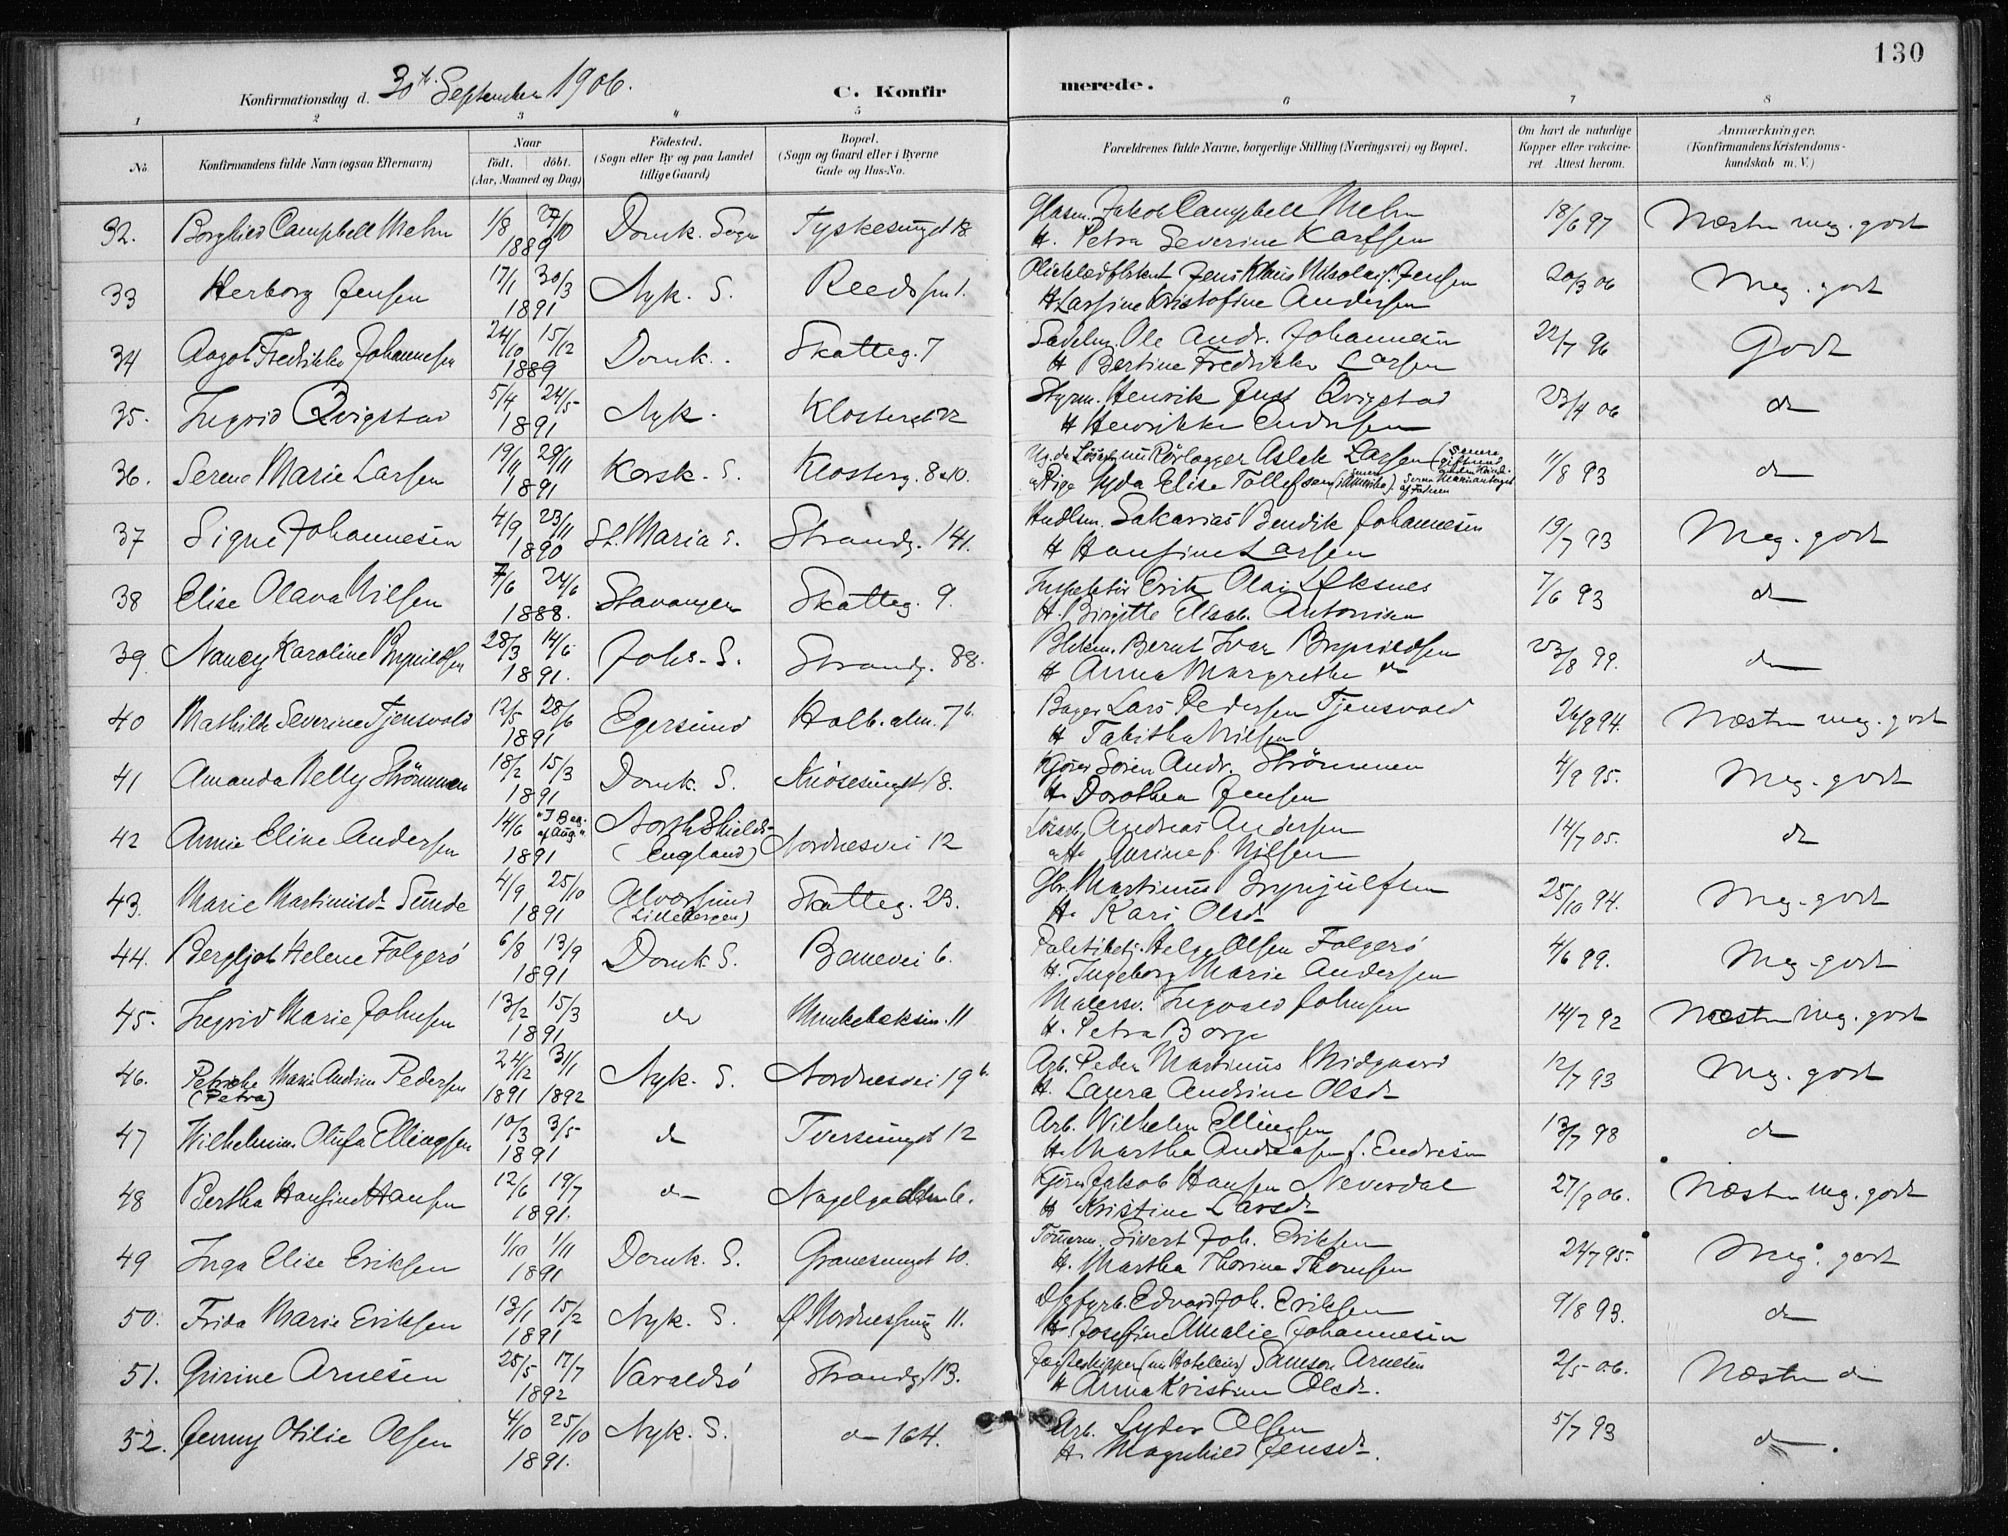 130
Konfirmationsdag d. 30te September 1906. C. Konfirmerede.
1 2 3 4 5 6 7 8
No. Konfirmandens fulde Navn (ogsaa Efternavn) Naar født. døbt. (Aar, Maaned og Dag) Födested. (Sogn eller By og paa Landet tillige Gaard) Bopæl. (Sogn og Gaard eller i Byerne Gade og Hus-No. Forældrenes fulde Navne, borgerlige Stilling (Næringsvei) og Bopæl. Om havt de naturlige Kopper eller vakcineret Attest herom. Anmærkninger. (Konfirmandens Kristendomskundskab m. V.)
32. Borghild Campbell Mehn 1/8 27/10 1889 Domk. Sogn Tyskesmuget 18 Glasm. Jakob Campbell Mehn 18/6 97 Næsten meg. godt
H. Petra Severine Karlsen
33 Herborg Jensen 17/1 30/3 1891 Nyk. S. Jens Klaus Nikolai Jensen 20/3 06 Meg. godt
H Larsine Kristofine Andersen
34 Aagot Fredrikke Johannesen 24/10 15/12 1889 Domk. Skatteg. 7 Sadelm. Ole Andr. Johannesen 22/7 96 Godt
H Bertine Fredrikke Larsen
35. Ingrid Qvigstad 5/4 24/5 1891 Nyk. Styrm. Henrik Just Qvigstad 23/4 06 do
H Henrikke Andersen
36. Serene Marie Larsen 19/9 29/11 1891 Korsk. S. Klosterg. 8 Rørlægger Aslak Larsen 11/8 93 do
Pige Gyda Elise Tollefsen (Amerika)
37 Signe Johannesen 4/9 23/11 1890 St. Maria S. Strandg. 141. Hndlm. Sakarias Bendik Johannesen 19/7 93 Meg. godt
H Hansine Larsen
38 Elise Olava Nilsen 7/6 24/6 1888. Stavanger Skatteg. 9. Inspektør Erik Olai Eksnes 7/6 93 do
H. Birgitte Elisab. Antonisen
39. Nancy Karoline Brynildsen 28/3 14/6 1891. Johs. S. Strandg. 88. Blikm. Bernt Ivar Brynildsen 23/8 99. do
H Anna Margrethe do
40 Mathilde Severine Tjensvold 12/5 28/6 1891 Egersund Holb. alm. 7b. Bager Lars Pedersen Tjensvold 26/9 94. Næsten meg. godt
H Tabitha Nilsen
41 Amanda Nelly Strömmen 18/2 15/3 1891 Domk. S. Knösesmuget 18. Kjører Sören Andr. Strömmen 4/9 95. Meg. godt
H. Dorothea Jensen
42 Annie Eline Andersen 14/6 "I Beg. af Aug" 1891 North Shields (England) Nordnesvei 12 Löiarb. Andreas Andersen 14/7 05. do
H. Gurine f. Nilsen
43. Marie Martinusd. Sunde 4/9 25/10 1891 Alværsund (Lillebergen) Skatteg. 23. Gbr. Martinus Brynjulfsen 25/10 94. Meg. godt
H. Kari Olsd.
44. Bergljot Helene Folgerö 6/8 13/9 1891 Domk. S. Banevei 6. Politibetj. Helge Olsen Folgerö 4/6 99. Meg. godt
H. Ingeborg Marie Andersen
45. Ingrid Marie Johnsen 13/2 15/3 1891 do Munkebeksm. 11 Malersv. Ingvald Johnsen 14/7 92 Næsten meg. godt
H. Petra Borge
46. Petrikke Marie Andrine Pedersen (Petra) 24/12 31/1 1891 1892 Nyk. S. Nordnesvei 19b. Arb. Peder Martinus Midgaard 12/7 93 Meg. godt
H. Laura Andrine Olsd.
47 Wilhelmine Olufa Ellingsen 10/3 3/5 1891 do Tversmuget 12 Arb. Wilhelm Ellingsen 13/7 98 do
H. Martha Andreasen f. Endresen
48 Bertha Hansine Hansen 12/6 19/7 1891. do Nagelgaden 6. Kjører Jakob Hansen Neverdal 27/9 06. Næsten meg. godt
H Kristine Larsd.
49 Inga Elise Eriksen 1/10 1/11 1891 Domk. S. Granesmuget 10. Tømerm. Sivert Joh. Eriksen 24/7 95. Meg. godt
H. Martha Thorine Thomsen
50. Frida Marie Eriksen 13/1 15/2 1891 Nyk. S. Nordnessmug 11. Edvard Joh. Eriksen 9/8 93. do
H. Josefine Amalie Johannesen
51. Gurine Arnesen 25/5 17/7 1892 Varaldsö Strandg. 113. Jægteskipper (nu Hoteleier) Samson Arnesen 2/5 06. Næsten do
H Anna Kristine Olsd.
52. Jenny Otilie Olsen 4/10 25/10 1891. Nyk. S. do 164. Arb. Lyder Olsen 5/7 93 do.
H. Magnhild Jensd.